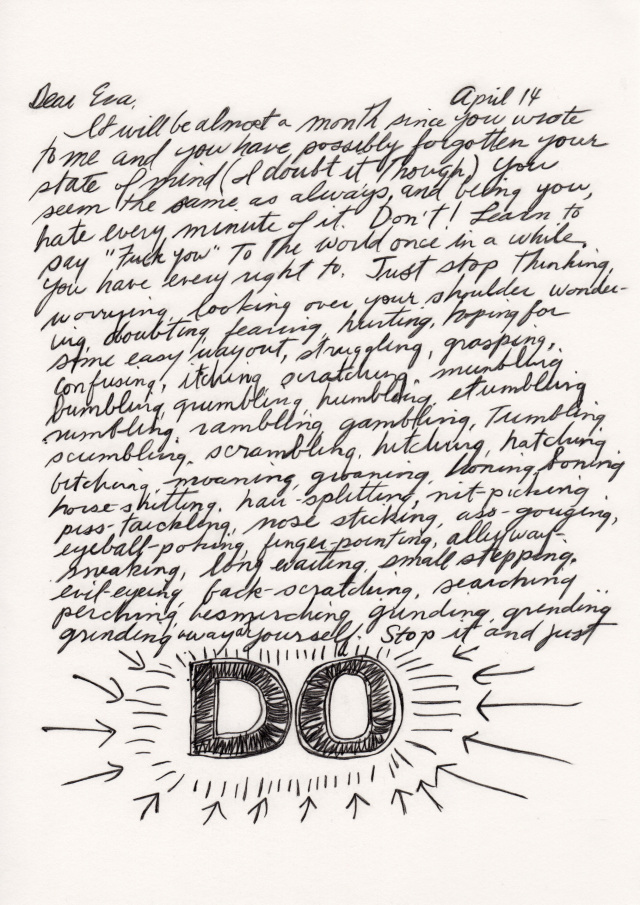 Dear Eva, April 14
It will be almost a month since you wrote
to me and you have possibly forgotten your
state of mind (I doubt it though) You
seem the same as always, and being you,
hate every minute of it. Don't! Learn to
say "Fuck You" to the world once in a while.
You have every right to. Just stop thinking,
worrying, looking over your shoulder wonder-
ing, doubting, fearing, hurting, hoping for
some easy way out, struggling, grasping,
confusing, itching, scratching, mumbling
bumbling, grumbling, humbling, stumbling
numbling, rambling, gambling, Tumbling
scumbling, scrambling, hitching, hatching
bitching, moaning, groaning, honing, boning
horse-shitting, hair-splitting, nit-picking
piss-trickling, nose sticking, ass-gouging,
eyeball-poking, finger-pointing, alleyway-
sneaking, long waiting, small stepping.
evil-eyeing, back-scratching, searching
perching, besmirching, grinding, grinding
grinding away at yourself. Stop it and just
DO